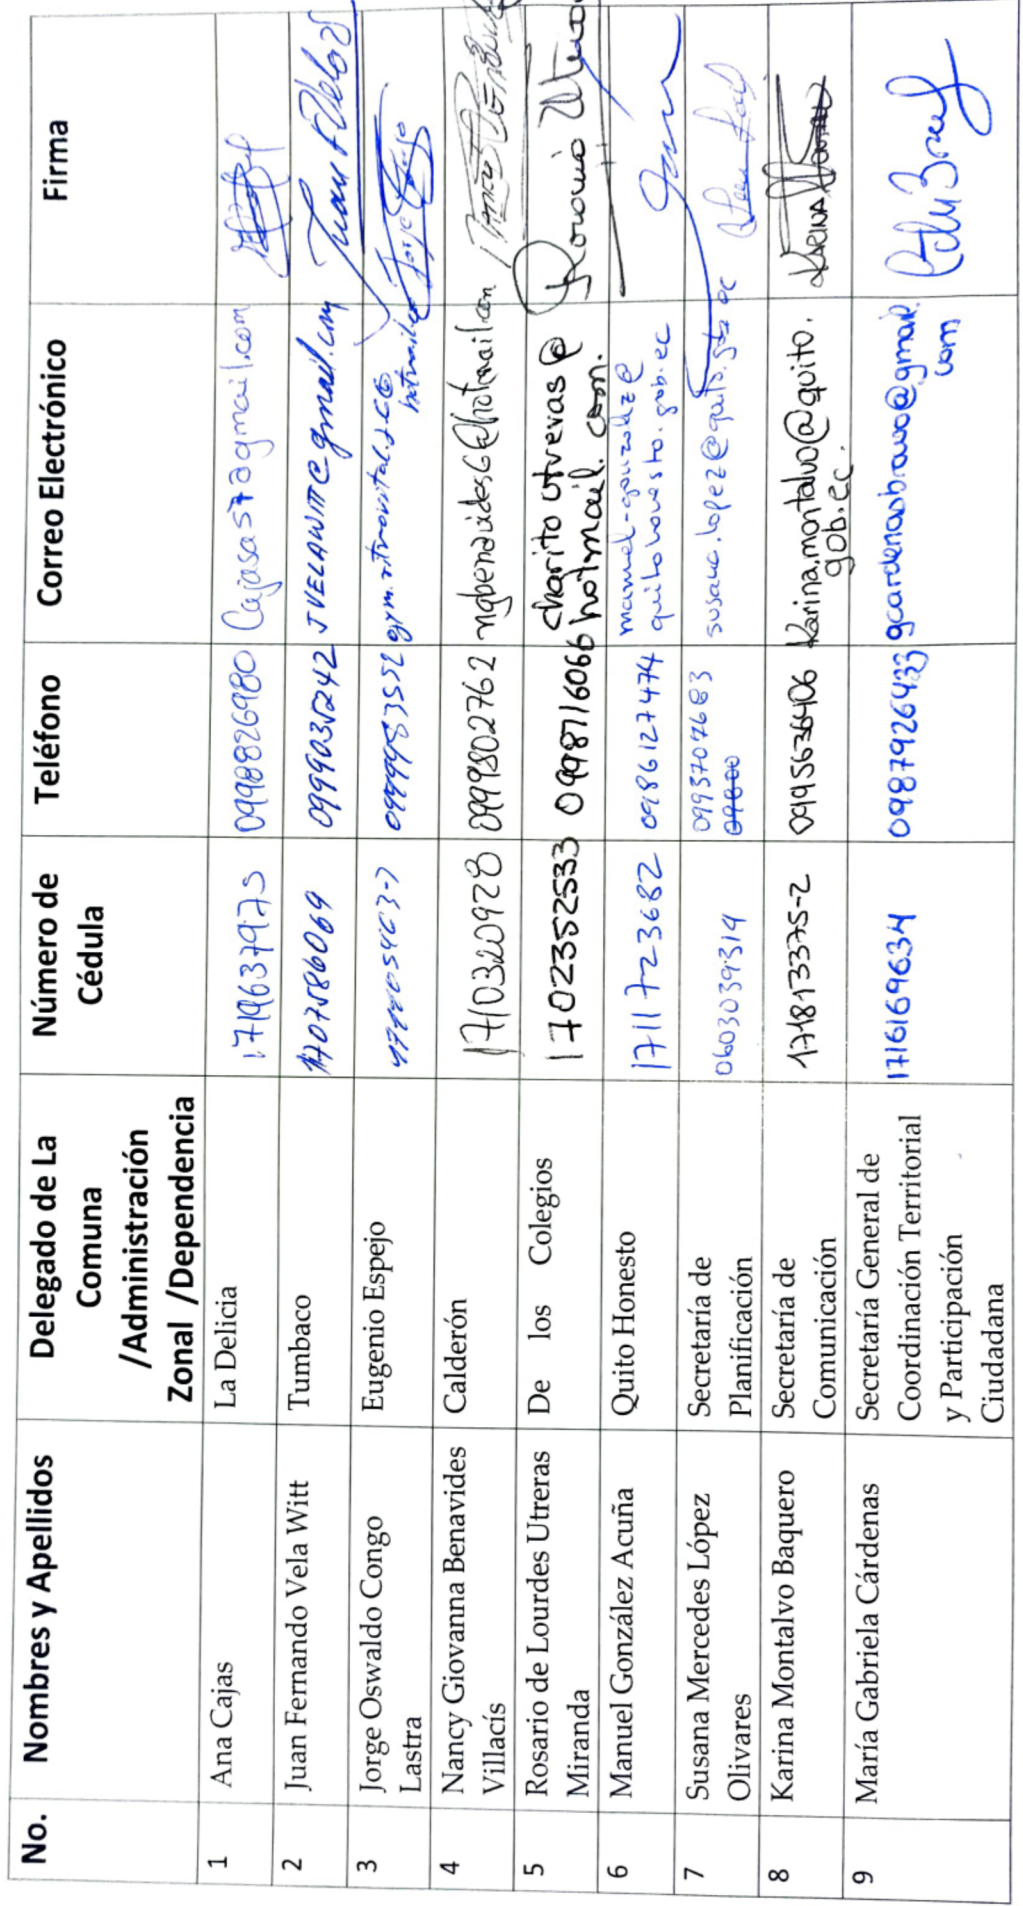 No.
Nombres y Apellidos
Delegado de La
Comuna
/Administración
Zonal /Dependencia
Número de
Cédula
Teléfono
Correo Electrónico
Firma
1
Ana Cajas
La Delicia
0998826980
2
Juan Fernando Vela Witt
Tumbaco
0999035242
JVELAWITT@gmail.com
3
Jorge Oswaldo Congo
Lastra
Eugenio Espejo
4
Nancy Giovanna Benavides
Villacís
Calderón
1710320928
0999802762
5
Rosario de Lourdes Utreras
Miranda
De los Colegios
1702352533
0998716066
charito utreras@
hotmail.com.
6
Manuel González Acuña
Quito Honesto
1711723682
0986127474
manuel-gonzalez@
quitohonesto.gob.ec
7
Susana Mercedes López
Olivares
Secretaría de
Planificación
0603039314
0993707683
8
Karina Montalvo Baquero
Secretaría de
Comunicación
171813375-2
Karina.montalvo@quito.
gob.ec.
KARINA
9
María Gabriela Cárdenas
Secretaría General de
Coordinación Territorial
y Participación
Ciudadana
1716169634
gcardenasbravo@gmail.
com